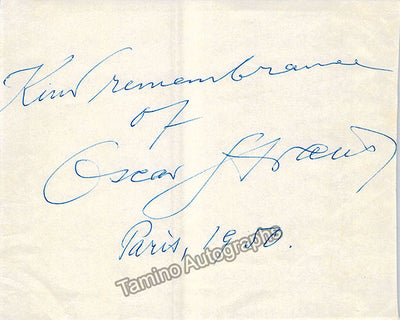 Kind remembrance
of
Oscar Straus
Paris, 1950.
Tamino Autographs